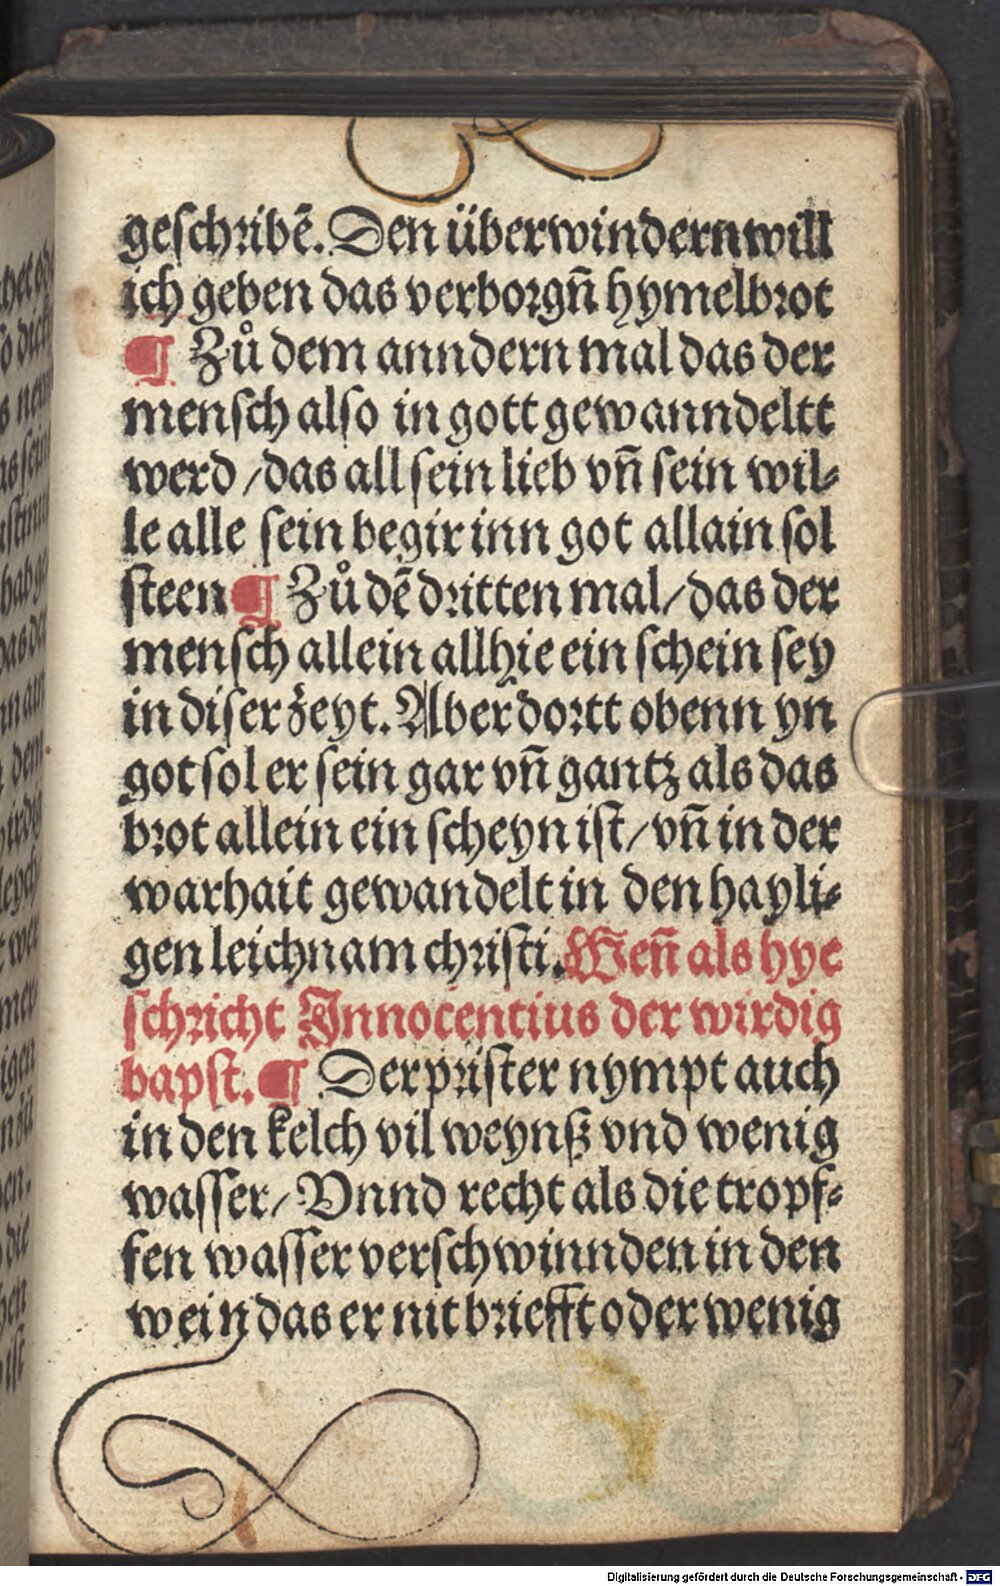 geſchribē. Den überwindern will
ich geben das verborgn̄ hymelbrot
¶ Zů dem anndern mal das der
menſch alſo in gott gewanndeltt
werd / das all ſein lieb vn̄ ſein wil⸗
le alle ſein begir inn got allain ſol
ſteen ¶ Zů dē dritten mal / das der
menſch allein allhie ein ſchein ſey
in diſer zeyt. Aber dortt obenn yn
got ſol er ſein gar vn̄ gantz als das
brot allein ein ſcheyn iſt / vn̄ in der
warhait gewandelt in den hayli⸗
gen leichnam chriſti. Wen̄ als hye
ſchricht Innocentius der wirdig
bapſt. ¶ Der priſter nympt auch
in den kelch vil weynß vnd wenig
waſſer / Vnnd recht als die tropf⸗
fen waſſer verſchwinnden in den
wein das er nit briefft oder wenig
Digitalisierung gefördert durch die Deutsche Forschungsgemeinschaft - DFG